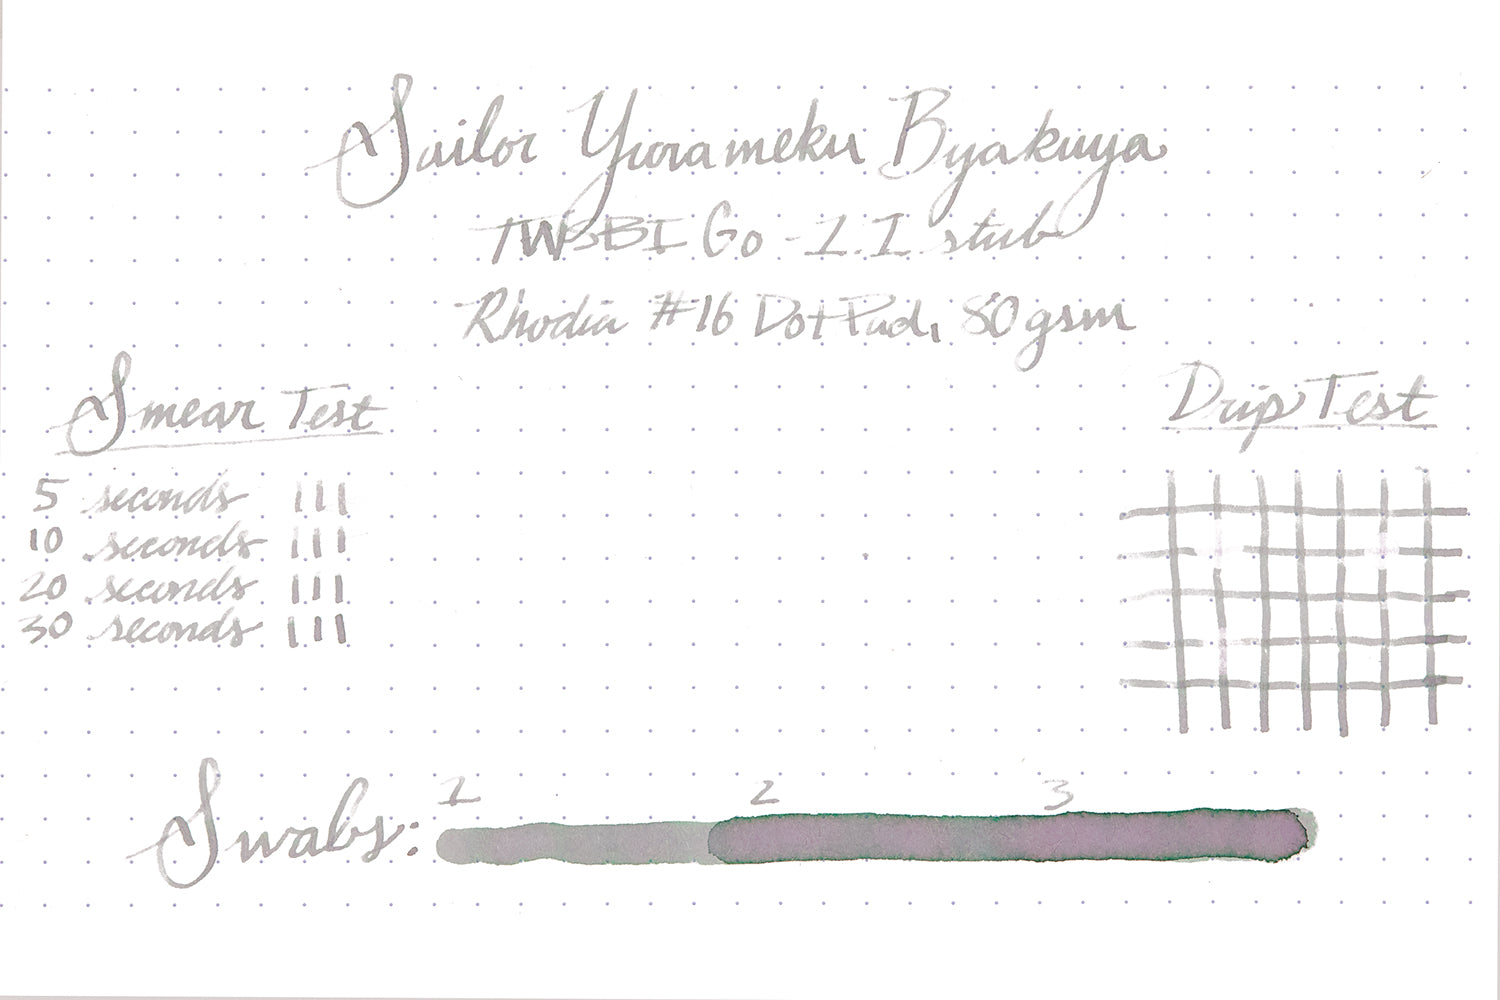 Sailor Yurameku Byakuya
TWSBI Go - 1.1 stub
Rhodia #16 Dot Pad, 80gsm
Smear Test
Drip Test
5 seconds
10 seconds
20 seconds
30 seconds
Swabs: 1 2 3